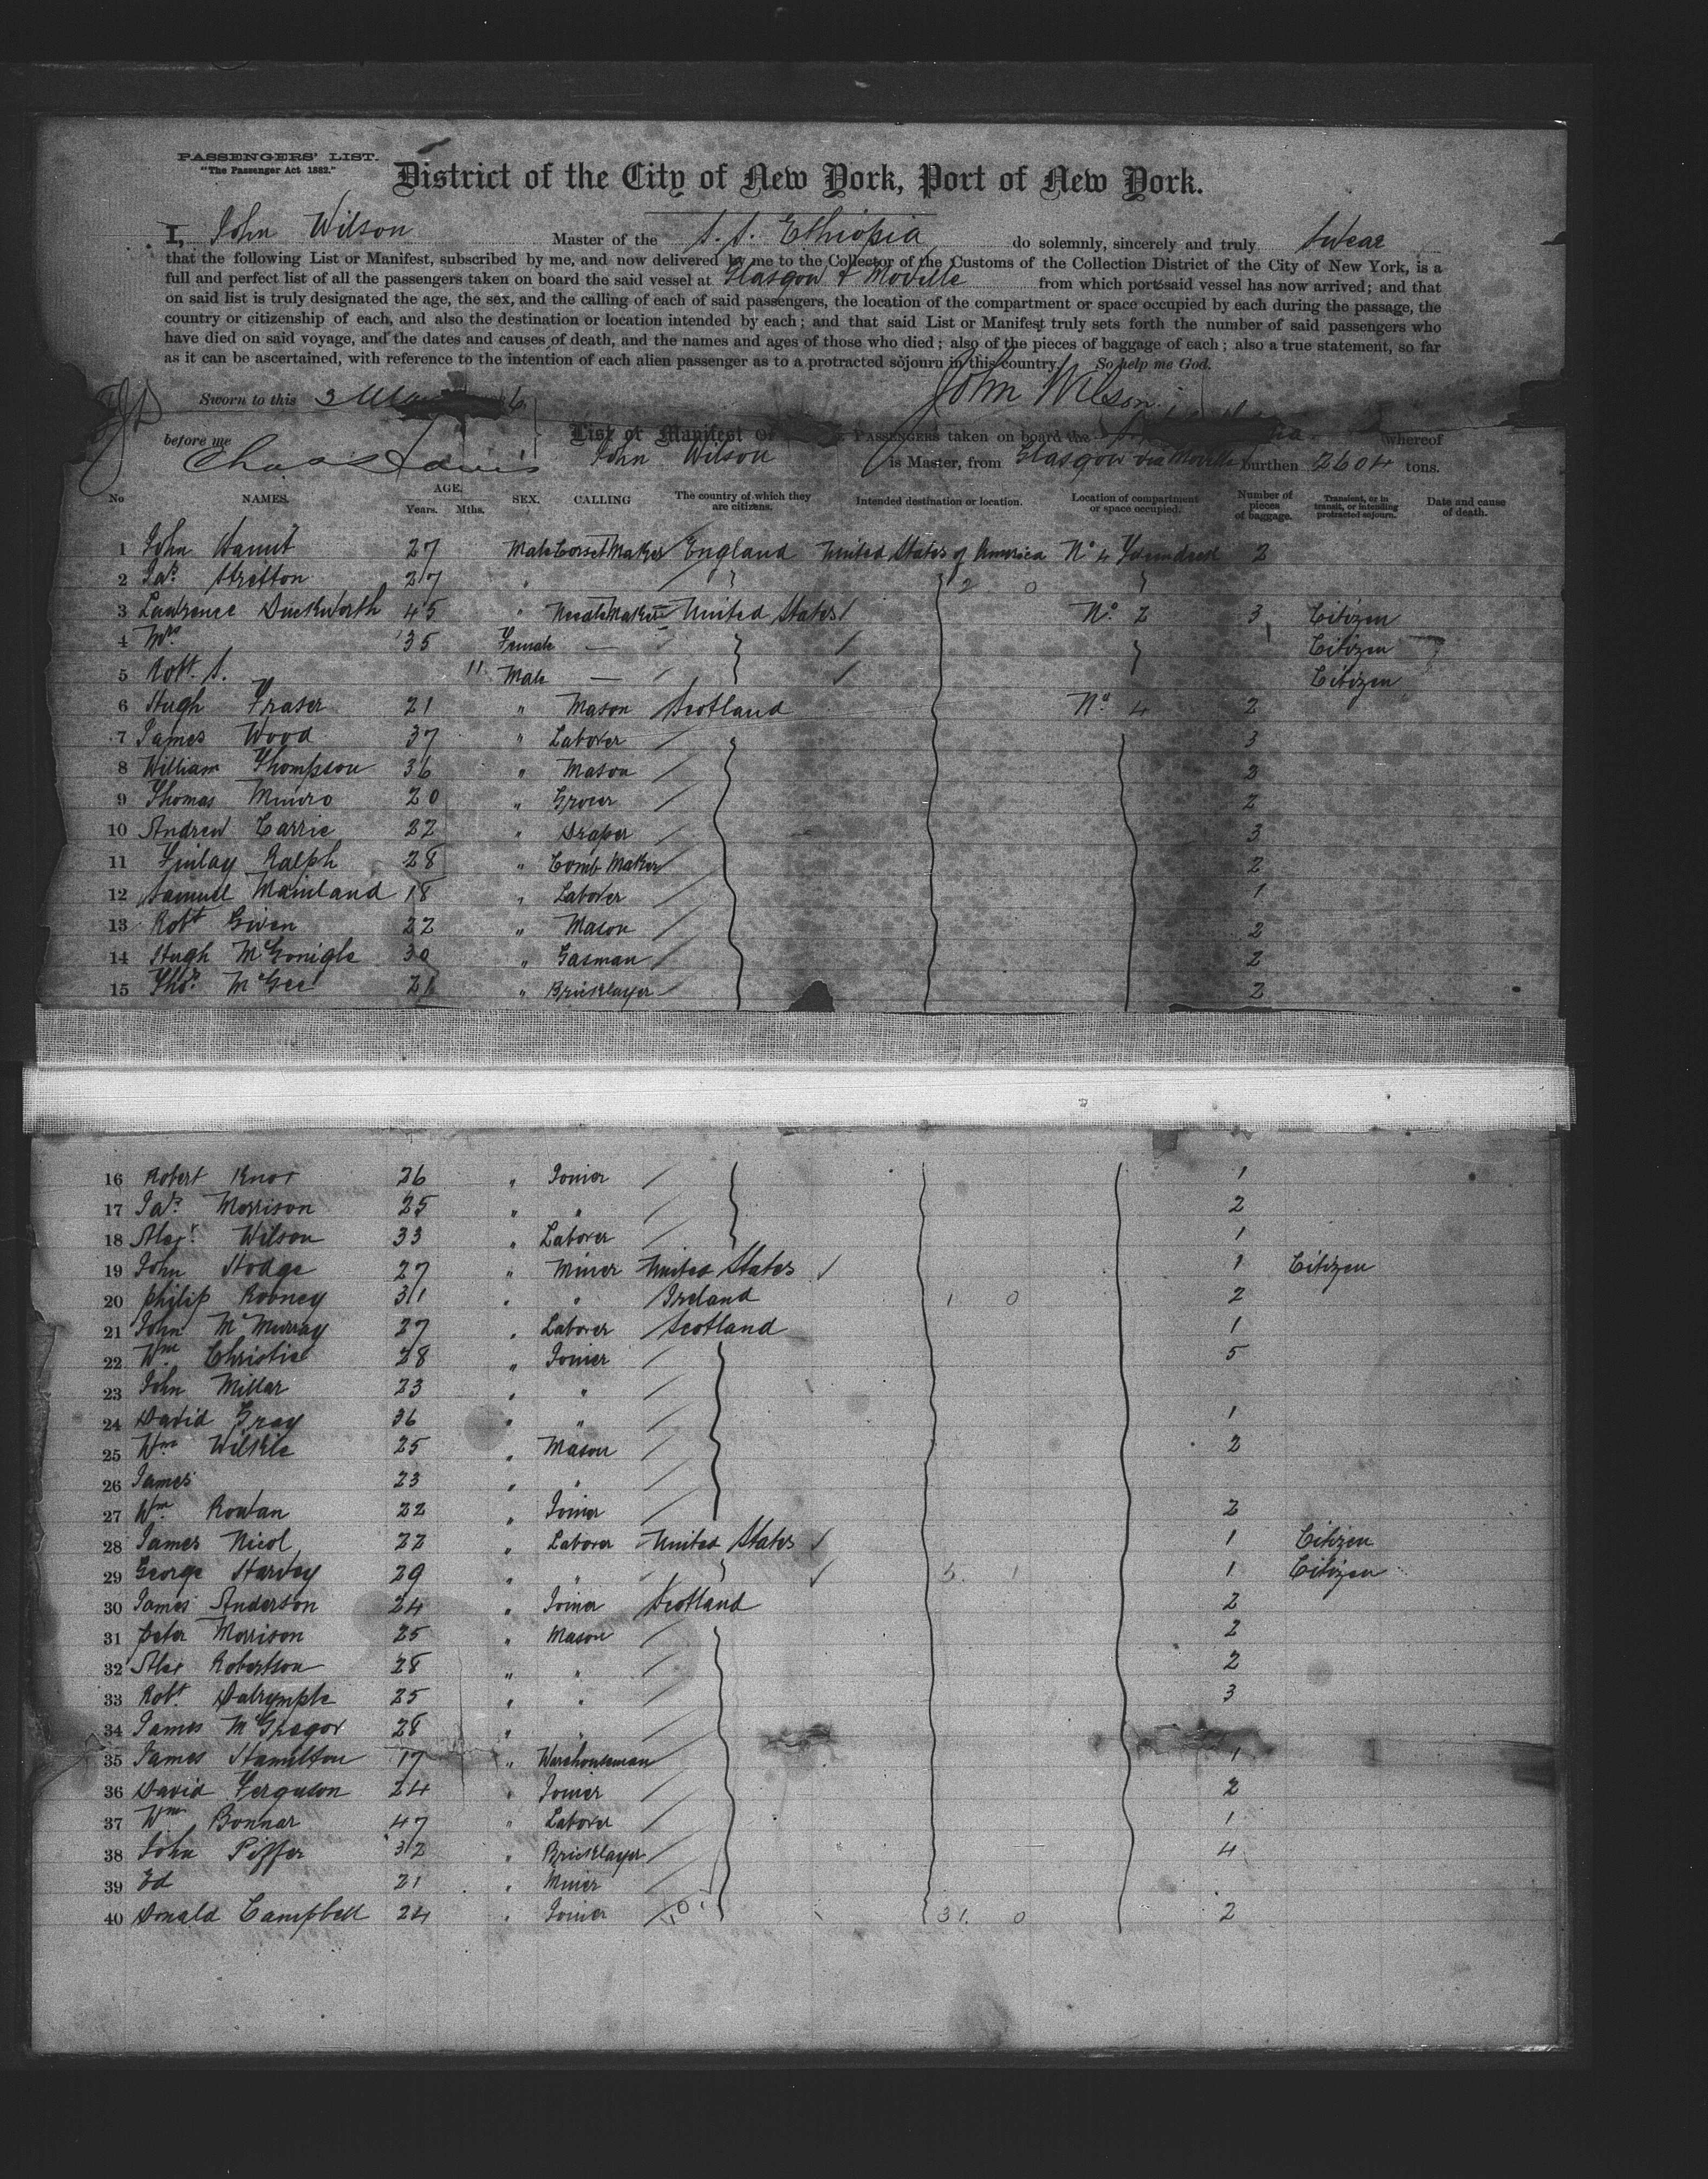 PASSENGERS' LIST.
"The Passenger Act 1882."
District of the City of New York, Port of New York.
I, John Wilson Master of the S. S. Ethiopia do solemnly, sincerely and truly swear
that the following List or Manifest, subscribed by me, and now delivered by me to the Collector of the Customs of the Collection District of the City of New York, is a
full and perfect list of all the passengers taken on board the said vessel at Glasgow & Moville from which ports said vessel has now arrived; and that
on said list is truly designated the age, the sex, and the calling of each of said passengers, the location of the compartment or space occupied by each during the passage, the
country or citizenship of each, and also the destination or location intended by each; and that said List or Manifest truly sets forth the number of said passengers who
have died on said voyage, and the dates and causes of death, and the names and ages of those who died; also of the pieces of baggage of each; also a true statement, so far
as it can be ascertained, with reference to the intention of each alien passenger as to a protracted sojourn in this country. So help me God.
Sworn to this 3 May 6 John Wilson
before me List or Manifest of PASSENGERS taken on board the whereof
John Wilson is Master, from Glasgow via Moville burthen 2604 tons.
No NAMES. AGE. Years. Mths. SEX. CALLING The country of which they are citizens. Intended destination or location. Location of compartment or space occupied. Number of pieces of baggage. Transient, or in transit, or intending protracted sojourn. Date and cause of death.
1 John 27 Male Corset Maker England United States of America No 4 2
2 Jas. Stretton 27 " 2 0
3 Lawrence Duckworth 45 " Needle Maker United States No. 2 3 Citizen
4 Mrs 35 Female — Citizen
5 Robt. S. 11 Male — Citizen
6 Hugh Fraser 21 " Mason Scotland No. 4 2
7 James Wood 37 " Laborer 3
8 William Thompson 36 " Mason 3
9 Thomas Munro 20 " Grocer 2
10 Andrew Carrie 22 " Draper 3
11 Finlay Ralph 28 " Comb Maker 2
12 Samuel Mainland 18 " Laborer 1
13 Robt Given 22 " Mason 2
14 Hugh McGonigle 30 " Gasman 2
15 Thos. McGee " Bricklayer 2
16 Robert Knox 26 " Joiner 1
17 Jas. Morrison 25 " " 2
18 Alexr. Wilson 33 " Laborer 1
19 John Hodge 27 " Miner United States 1 Citizen
20 Philip Rooney 31 " " Ireland 1 0 2
21 John McMurray 27 " Laborer Scotland 1
22 Wm Christie 28 " Joiner 5
23 John Millar 23 " "
24 David Gray 36 " " 1
25 Wm Wilkie 25 " Mason 2
26 James 23 " "
27 Wm Rowan 22 " Joiner 2
28 James Nicol 22 " Laborer United States 1 Citizen
29 George Harvey 29 " " 5 1 1 Citizen
30 James Anderson 24 " Joiner Scotland 2
31 Peter Morrison 25 " Mason 2
32 Alex Robertson 28 " " 2
33 Robt. Dalrymple 25 " " 3
34 James McGregor 28 " "
35 James Hamilton 17 " Warehouseman 1
36 David Ferguson 24 " Joiner 2
37 Wm Bonnar 47 " Laborer 1
38 John Piffer 32 " Bricklayer 4
39 Ed 21 " Miner
40 Donald Campbell 24 " Joiner 31 0 2